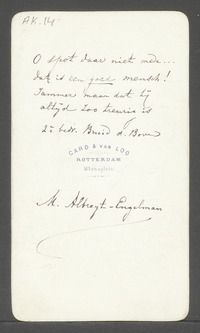 AK. 14
O spot daar niet mede...
dat is een goed mensch!
Jammer maar dat hij
altijd zoo treurig is
2e bedr.
CARO & VAN LOO
ROTTERDAM
M. Albregt-Engelman